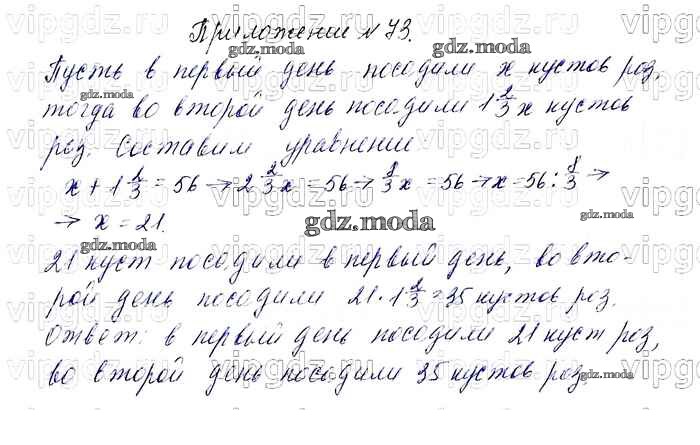 Приложение № 73.
Пусть в первый день посадили x кустов роз,
тогда во второй день посадили 1 2/3 x кустов
роз. Составим уравнение
x + 1 2/3 = 56 → 2 2/3 x = 56 → 8/3 x = 56 → x = 56 : 8/3 →
→ x = 21.
21 куст посадили в первый день, во вто-
рой день посадили 21 · 1 2/3 = 35 кустов роз.
Ответ: в первый день посадили 21 куст роз,
во второй день посадили 35 кустов роз.
gdz.moda
gdz.moda
gdz.moda
gdz.moda
gdz.moda
gdz.moda
gdz.moda
gdz.moda
vipgdz.ru